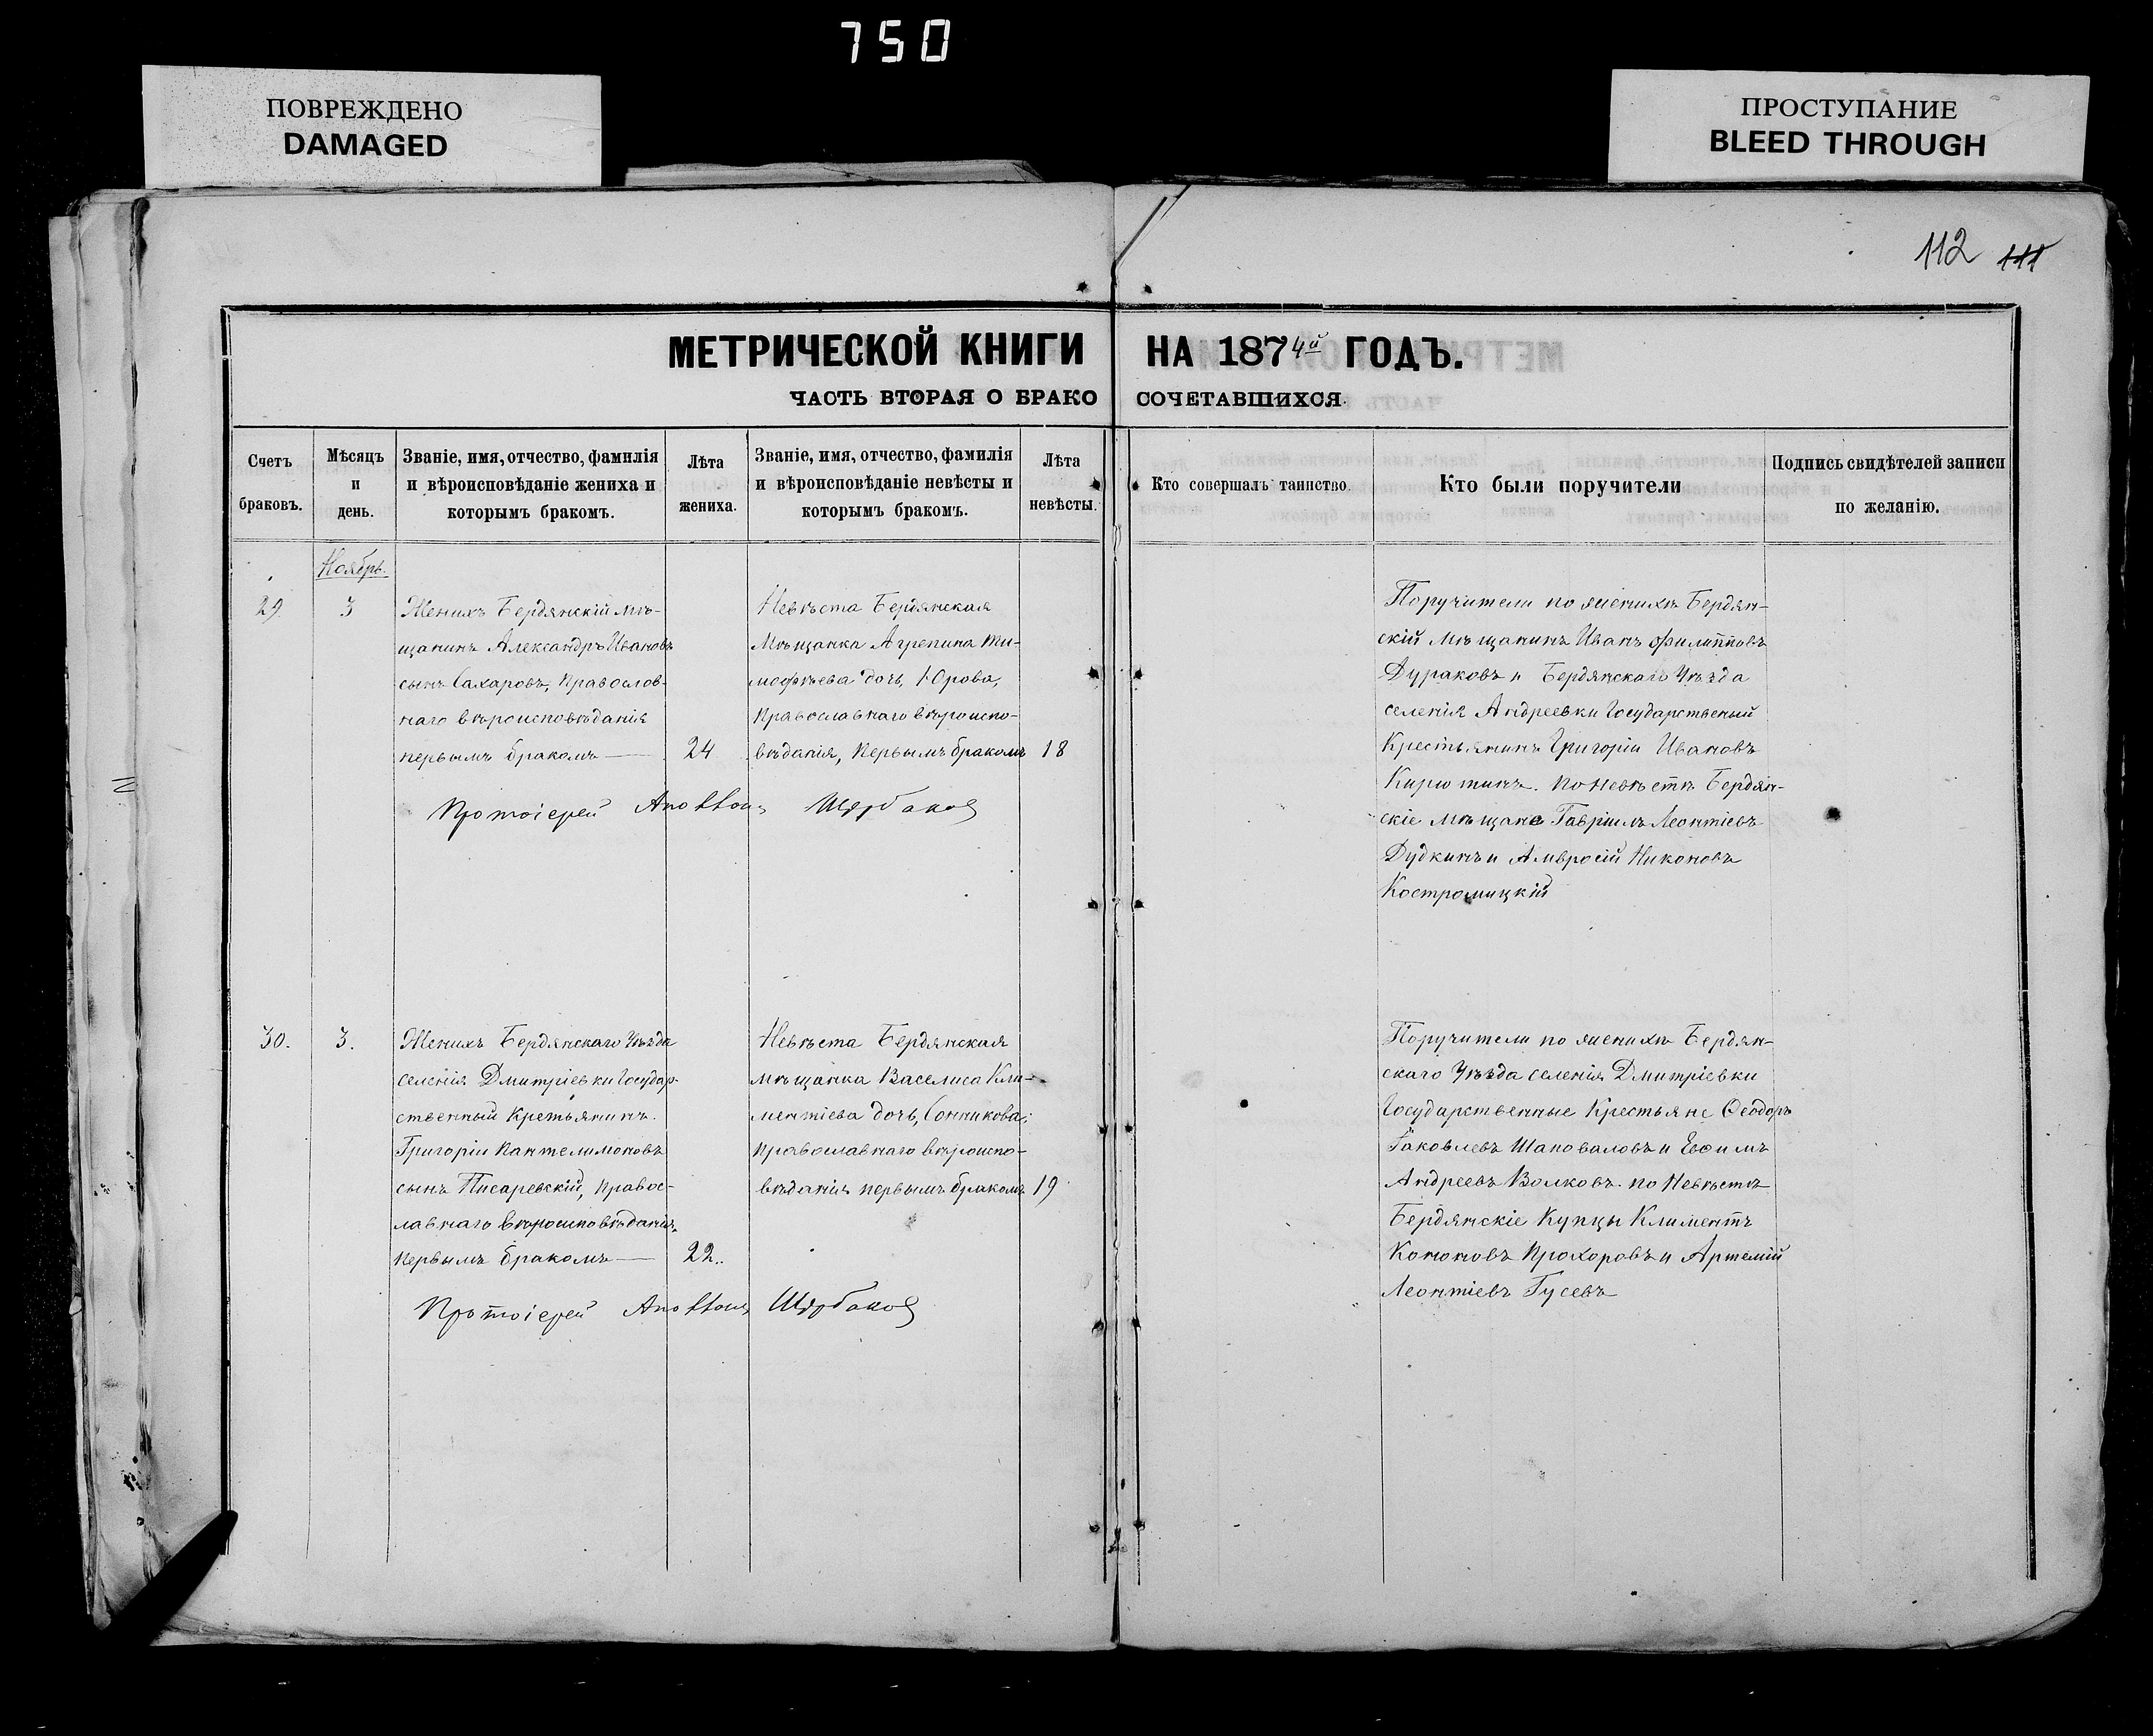 750
ПОВРЕЖДЕНО
DAMAGED
ПРОСТУПАНИЕ
BLEED THROUGH
112 111
МЕТРИЧЕСКОЙ КНИГИ НА 1874й ГОДЪ.
ЧАСТЬ ВТОРАЯ О БРАКОСОЧЕТАВШИХСЯ.
Счетъ
браковъ.
Мѣсяцъ
и
день.
Званіе, имя, отчество, фамилія
и вѣроисповѣданіе жениха и
которымъ бракомъ.
Лѣта
жениха.
Званіе, имя, отчество, фамилія
и вѣроисповѣданіе невѣсты и
которымъ бракомъ.
Лѣта
невѣсты.
Кто совершалъ таинство.
Кто были поручители
Подпись свидѣтелей записи
по желанію.
Ноябрь.
29
3
Женихъ Бердянскій мѣ-
щанинъ Александръ Ивановъ
сынъ Сахаровъ, Православ-
наго вѣроисповѣданія
первымъ бракомъ —
24
Невѣста Бердянская
Мѣщанка Агрепина Ти-
мофѣева дочь, Юрова,
Православнаго вѣроиспо-
вѣданія, Первымъ бракомъ
18
Протоіерей Аполлонъ Щербаковъ
Поручители по женихѣ Бердян-
скій Мѣщанинъ Иванъ Филипповъ
Дураковъ и Бердянскаго Уѣзда
селенія Андреевки Государственый
Крестьянинъ Григорій Ивановъ
Кирютинъ. По невѣстѣ Бердян-
скіе мѣщане Гавріилъ Леонтіевъ
Дудкинъ и Амвросій Никоновъ
Костромицкій
30.
3.
Женихъ Бердянскаго Уѣзда
селенія Дмитріевки Государ-
ственный Кретьянинъ
Григорій Пантелимоновъ
сынъ Писаревскій, Правос-
лавнаго вѣроисповѣданія,
Первымъ бракомъ —
22..
Невѣста Бердянская
мѣщанка Васелиса Кли-
ментіева дочь, Сонникова;
Православнаго вѣроиспо-
вѣданія первымъ бракомъ
19
Протоіерей Аполлонъ Щербаковъ
Поручители по женихѣ Бердян-
скаго Уѣзда селенія Дмитріевки
Государственные Крестьяне Ѳеодоръ
Іаковлевъ Шаповаловъ и Евѳимъ
Андреевъ Волковъ. по Невѣстѣ
Бердянскіе Купцы Климентъ
Кононовъ Прохоровъ и Артемій
Леонтіевъ Гусевъ